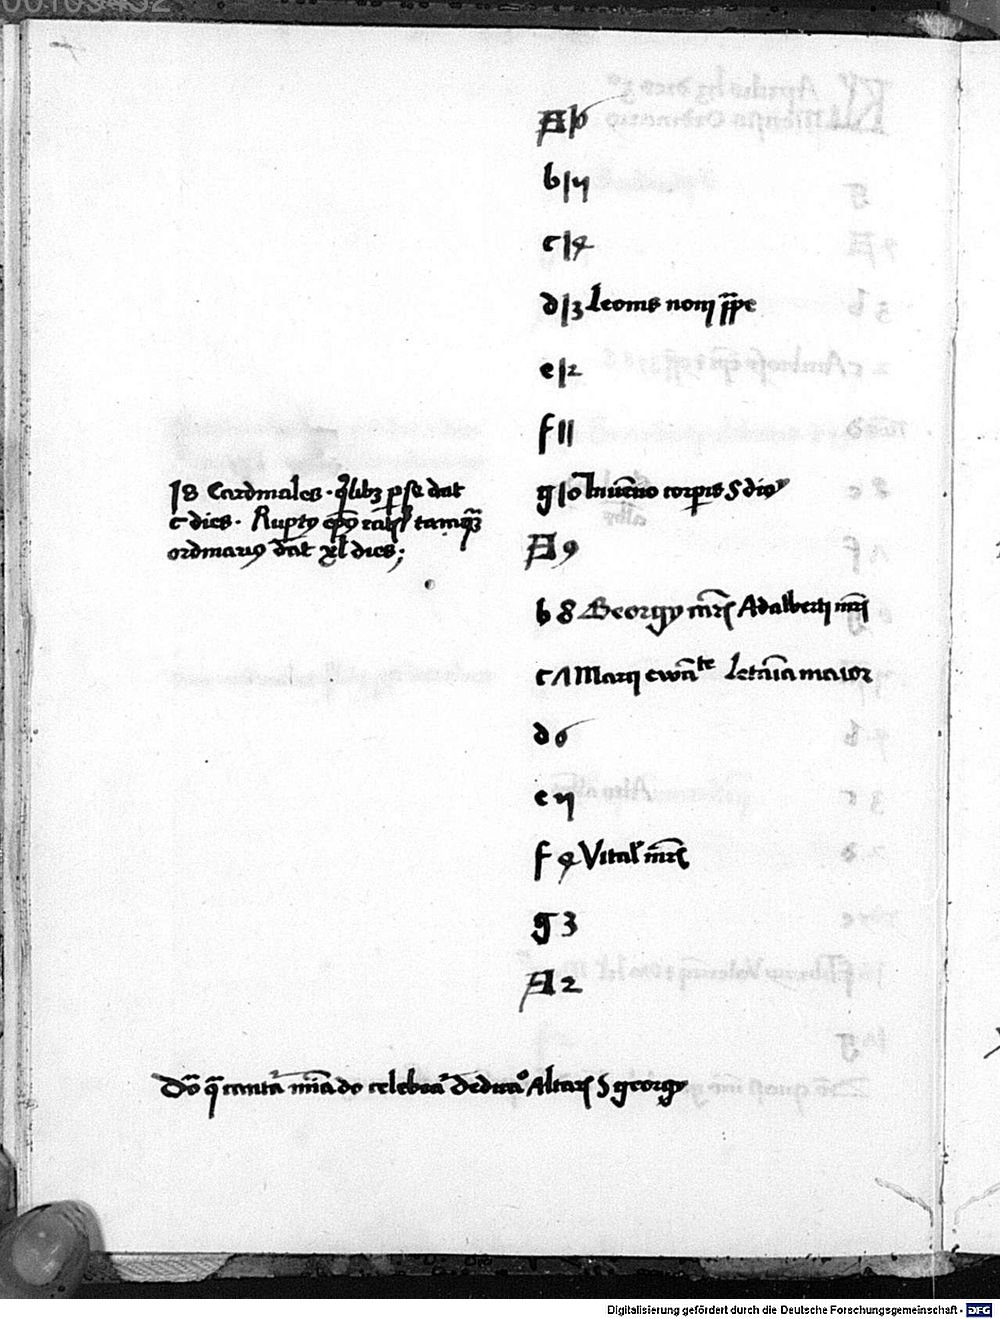 A 16
b 15
c 14
d 13 Leonis noni ppe
e 12
f 11
g 10 Inuencio corporis S dioy
18 Cardinales · qlibz p se dat
c dies · Rupto epo tamqz
ordinario dat xl dies ;
A 9
b 8 Georgy mrs Adalberti mrs
c 7 Marci ewante letania maior
d 6
e 5
f 4 Vital mrs
g 3
A 2
Do q cantat mia do celebrat dedicao Altaris S georgy
Digitalisierung gefördert durch die Deutsche Forschungsgemeinschaft - DFG